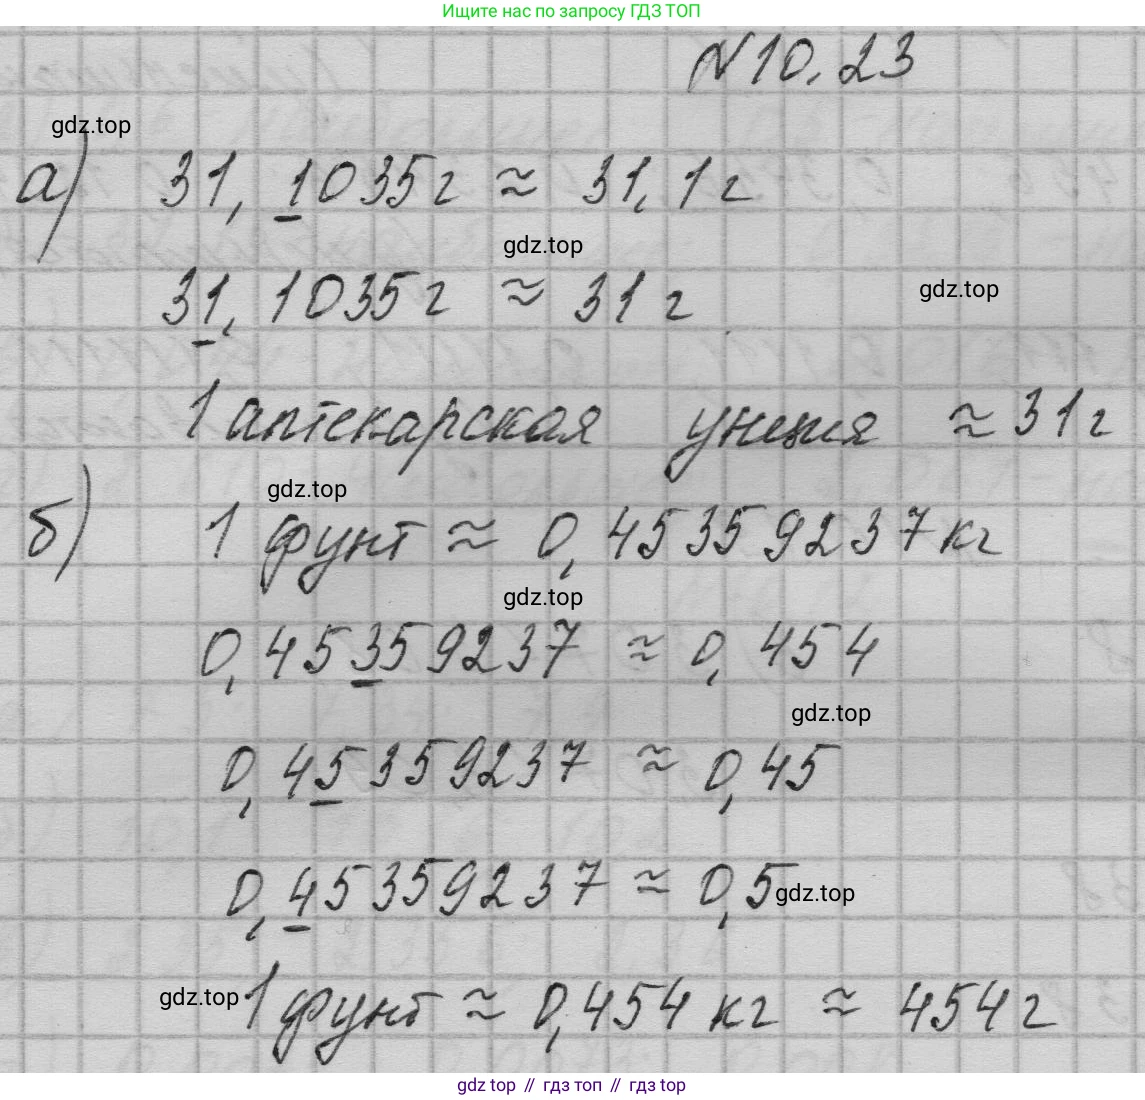 Ищите нас по запросу ГДЗ ТОП
N10.23
gdz.top
а) 31,1035г ≈ 31,1г
gdz.top
31,1035г ≈ 31г
gdz.top
1 аптекарская унция ≈ 31г
gdz.top
б) 1 фунт ≈ 0,45359237кг
gdz.top
0,45359237 ≈ 0,454
gdz.top
0,45359237 ≈ 0,45
0,45359237 ≈ 0,5
gdz.top
gdz.top
1 фунт ≈ 0,454 кг ≈ 454г
gdz top // гдз топ // гдз top